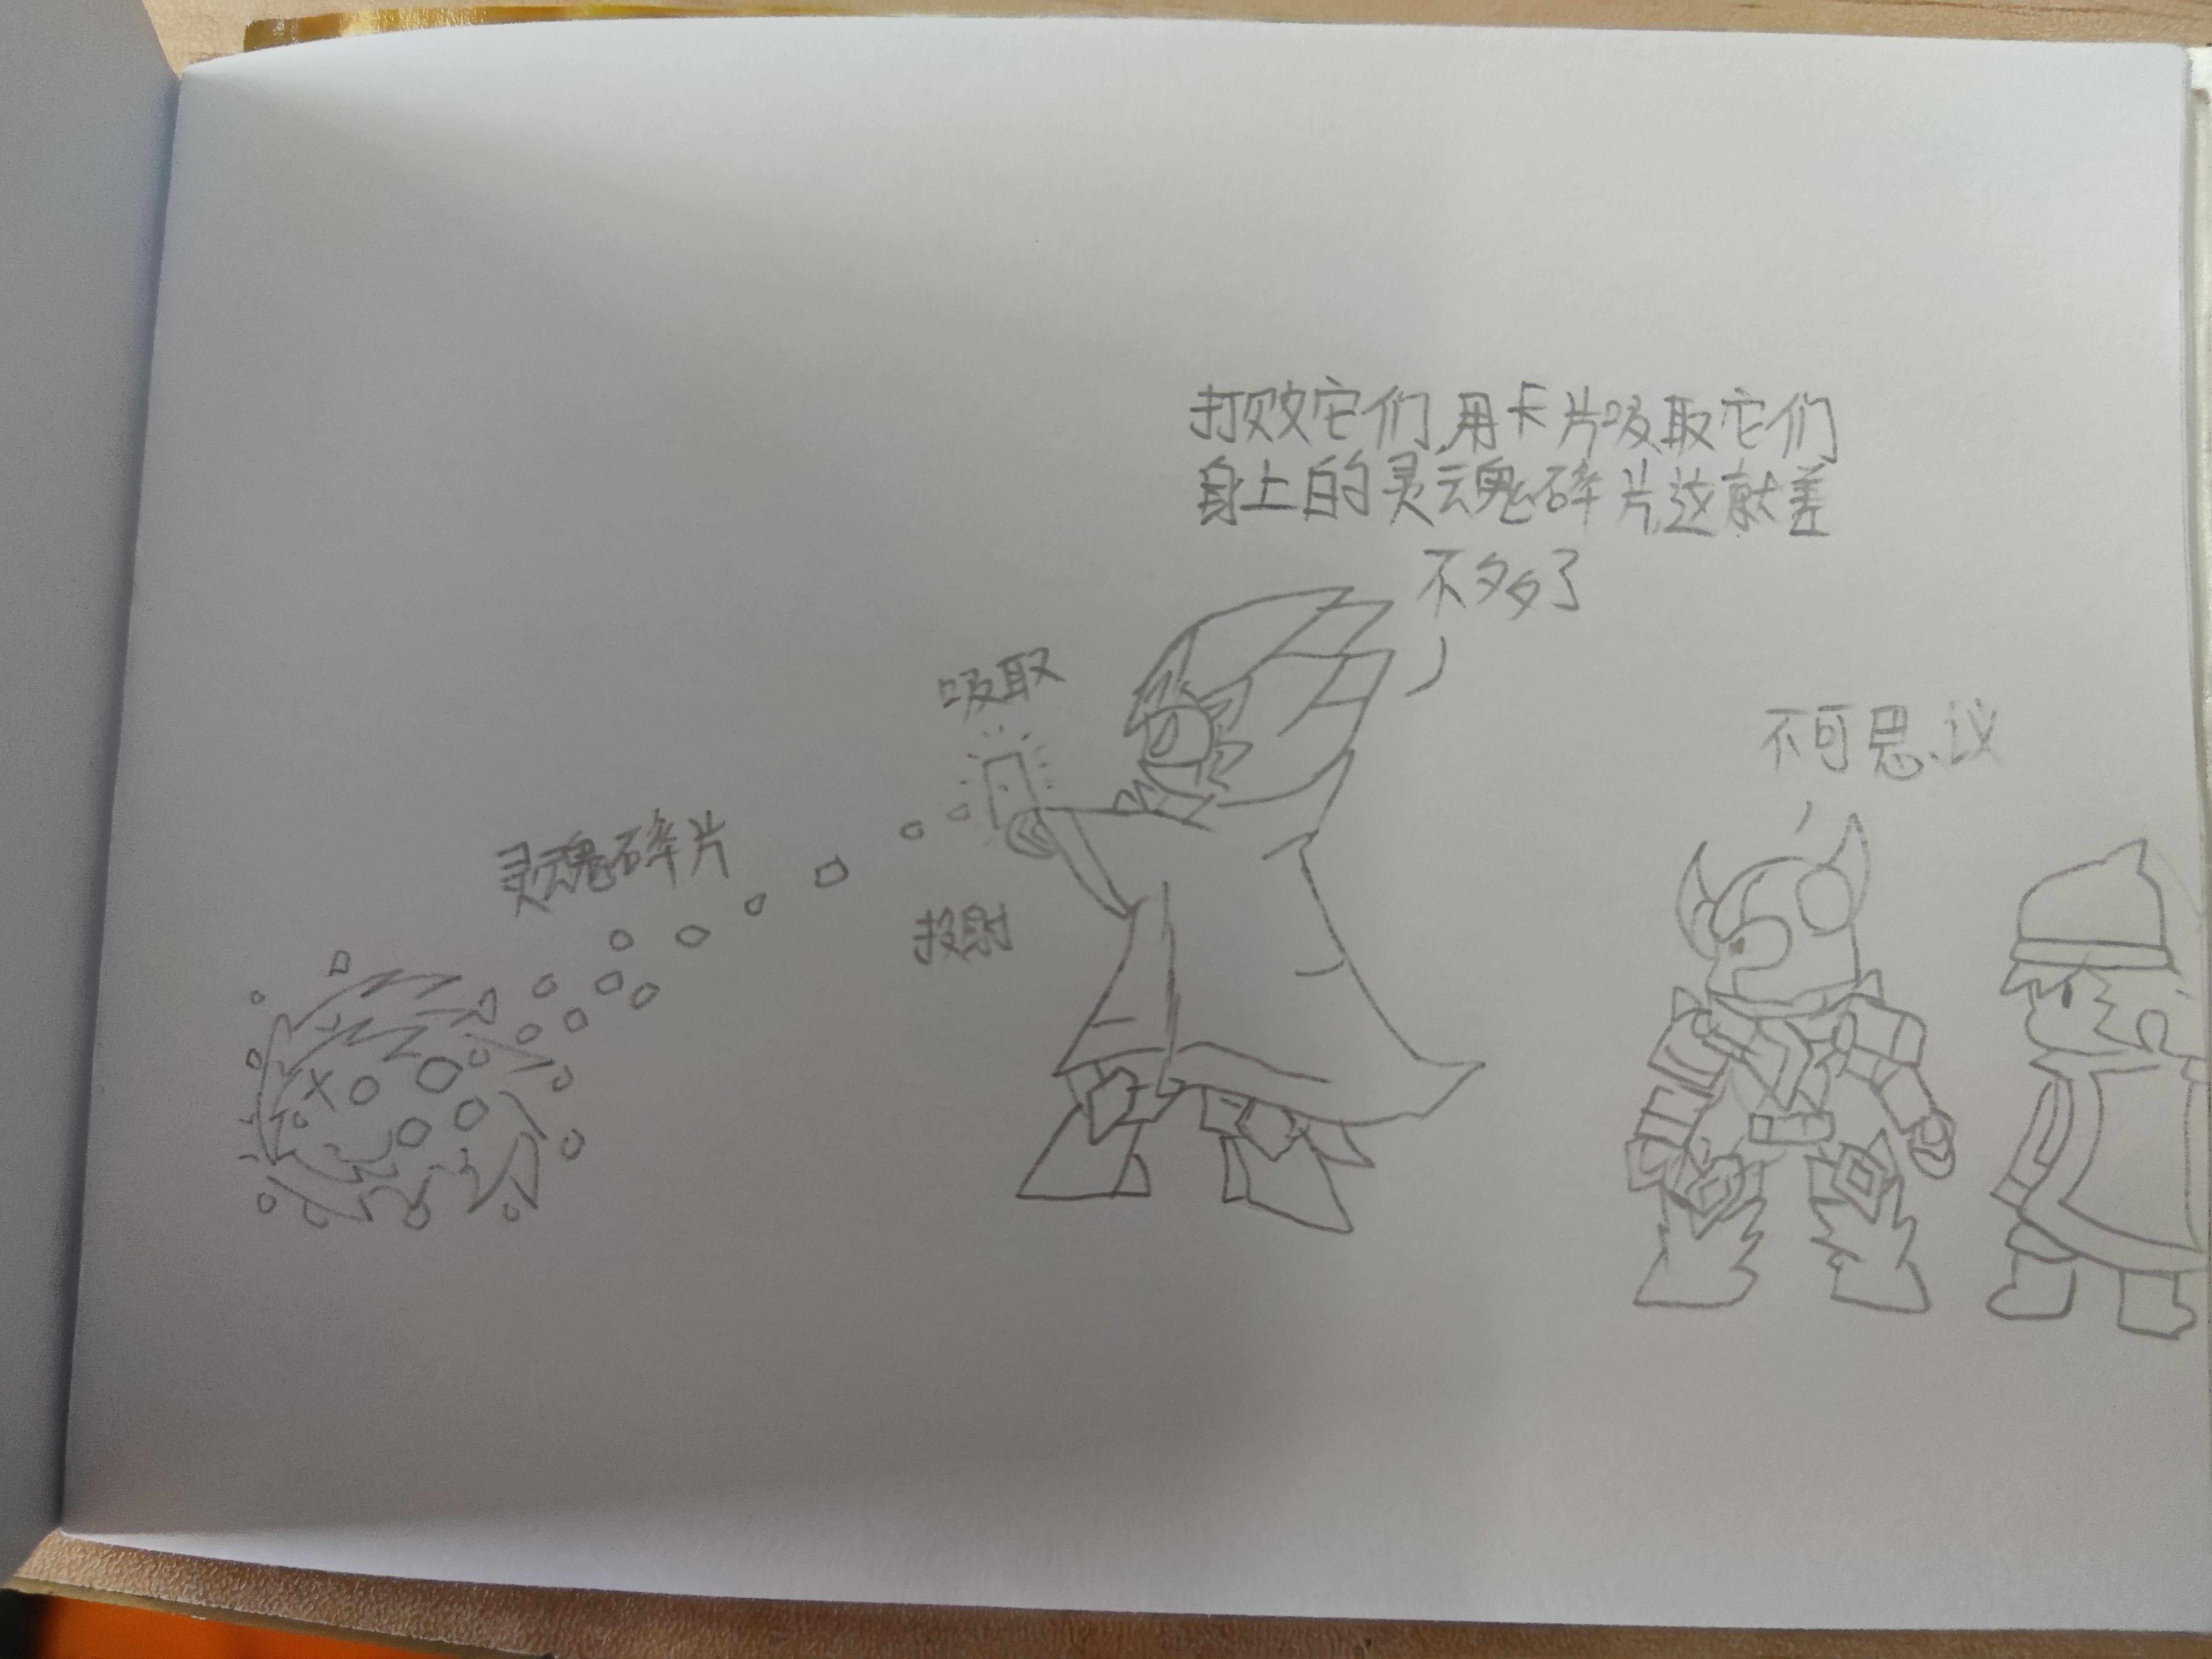 打败它们,用卡片吸取它们
身上的灵魂碎片这就差
不多了
吸取
不可思议
灵魂碎片
投射